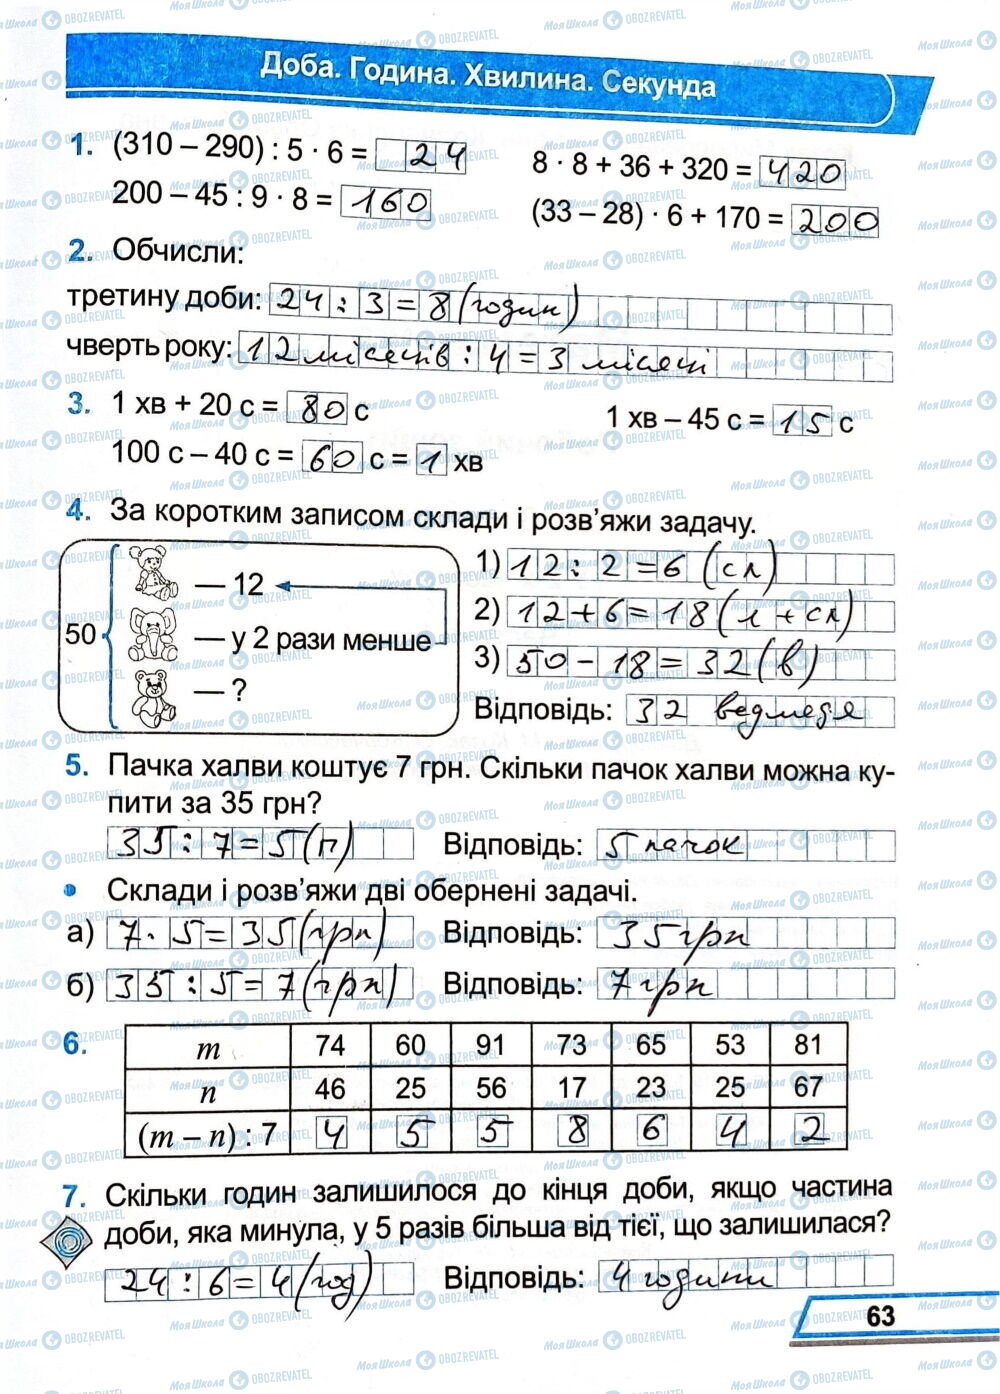 Доба. Година. Хвилина. Секунда
1. (310 – 290) : 5 · 6 = 24
8 · 8 + 36 + 320 = 420
200 – 45 : 9 · 8 = 160
(33 – 28) · 6 + 170 = 200
2. Обчисли:
третину доби: 24 : 3 = 8 (годин)
чверть року: 12 місяців : 4 = 3 місяці
3. 1 хв + 20 с = 80 с
1 хв – 45 с = 15 с
100 с – 40 с = 60 с = 1 хв
4. За коротким записом склади і розв’яжи задачу.
50
— 12
— у 2 рази менше
— ?
1) 12 : 2 = 6 (сл)
2) 12 + 6 = 18 (л + сл)
3) 50 – 18 = 32 (в)
Відповідь: 32 ведмедя
5. Пачка халви коштує 7 грн. Скільки пачок халви можна ку-
пити за 35 грн?
35 : 7 = 5 (п) Відповідь: 5 пачок
• Склади і розв’яжи дві обернені задачі.
а) 7 · 5 = 35 (грн) Відповідь: 35 грн
б) 35 : 5 = 7 (грн) Відповідь: 7 грн
6. m 74 60 91 73 65 53 81
n 46 25 56 17 23 25 67
(m – n) : 7 4 5 5 8 6 4 2
7. Скільки годин залишилося до кінця доби, якщо частина
доби, яка минула, у 5 разів більша від тієї, що залишилася?
24 : 6 = 4 (год) Відповідь: 4 години
63
МояШкола OBOZREVATEL